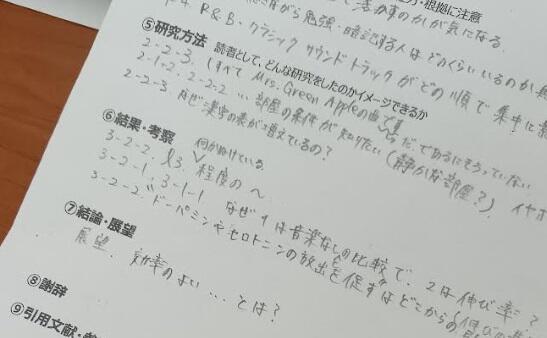 ・根拠に注意
P4. R&B、クラシック サウンドトラックがどの順で集中に
から勉強・暗記する人はどのくらいいるのか
て活かすのかが気になる
⑤研究方法 読者として、どんな研究をしたのかイメージできるか
2-2-3. (すべて Mrs. Green Appleの曲で
だ、であるにそろっていない
2-1-2. 2-2-2 … 部屋の条件が知りたい (静かな部屋?) イヤホ
2-2-3. なぜ漢字の表が増えているの?
⑥結果・考察
3-2-2. 何かぬけている
3-2-1. 程度の へ
3-1-1 なぜ 1は音楽なしの比較で、2は伸び率?
3-2-2 ドーパミンやセロトニンの放出を促すはどこからの
⑦結論・展望
展望. 効率のよい … とは?
⑧謝辞
⑨引用文献・